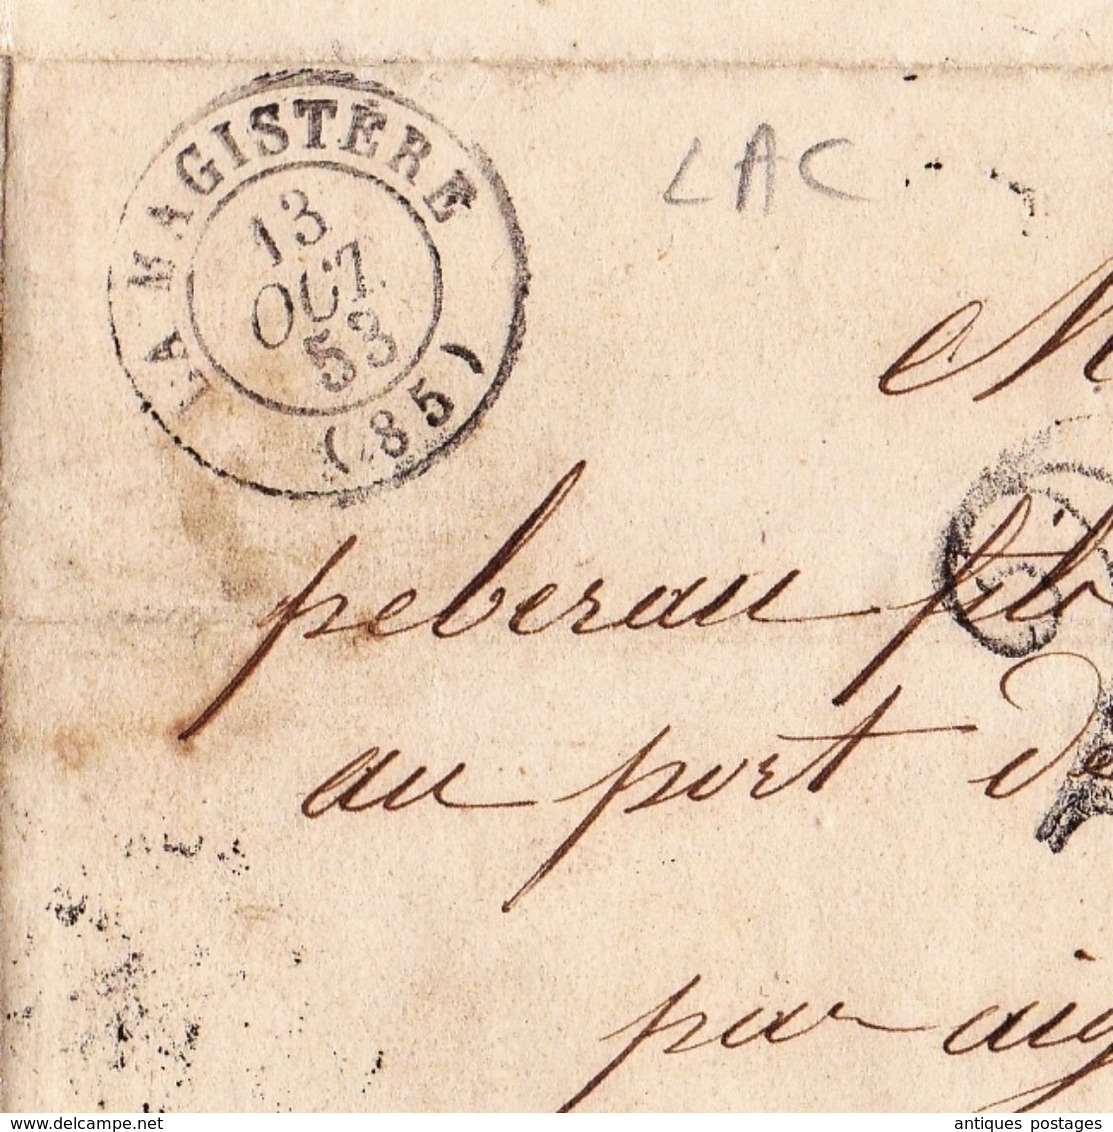 LA MAGISTÈRE
13
OCT.
53
(85)
LAC
M
peberau fils
au port de
par aig
www.delcampe.net
antiques postages